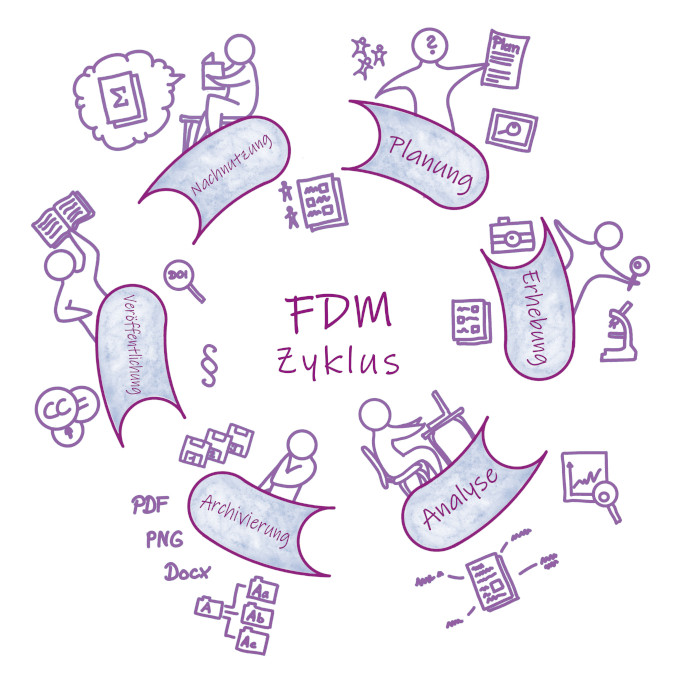 FDM
Zyklus
Planung
?
Plan
Erhebung
Analyse
Archivierung
PDF
PNG
Docx
A
Aa
Ab
Ac
Veröffentlichung
DOI
§
CC
=
Nachnutzung
Σ